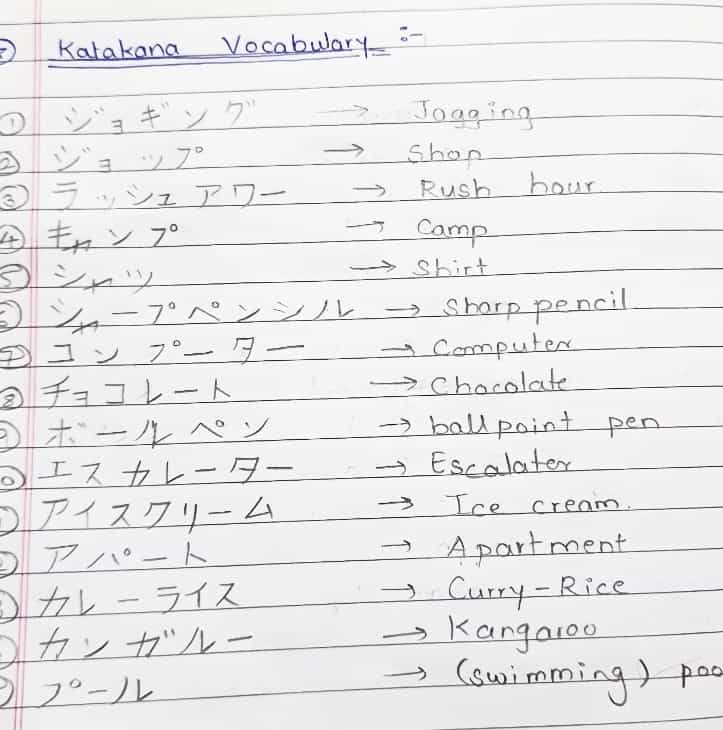 Katakana Vocabulary :-
① ジョギング → Jogging
② ジョップ → Shop
③ ラッシュアワー → Rush hour
④ キャンプ → Camp
⑤ シャツ → Shirt
シャープペンシル → Sharp pencil
コンプーター → Computer
⑧ チョコレート → Chocolate
ボールペン → ballpoint pen
エスカレーター → Escalater
アイスクリーム → Ice cream.
アパート → Apartment
カレーライス → Curry-Rice
カンガルー → Kangaroo
プール → (swimming) poo